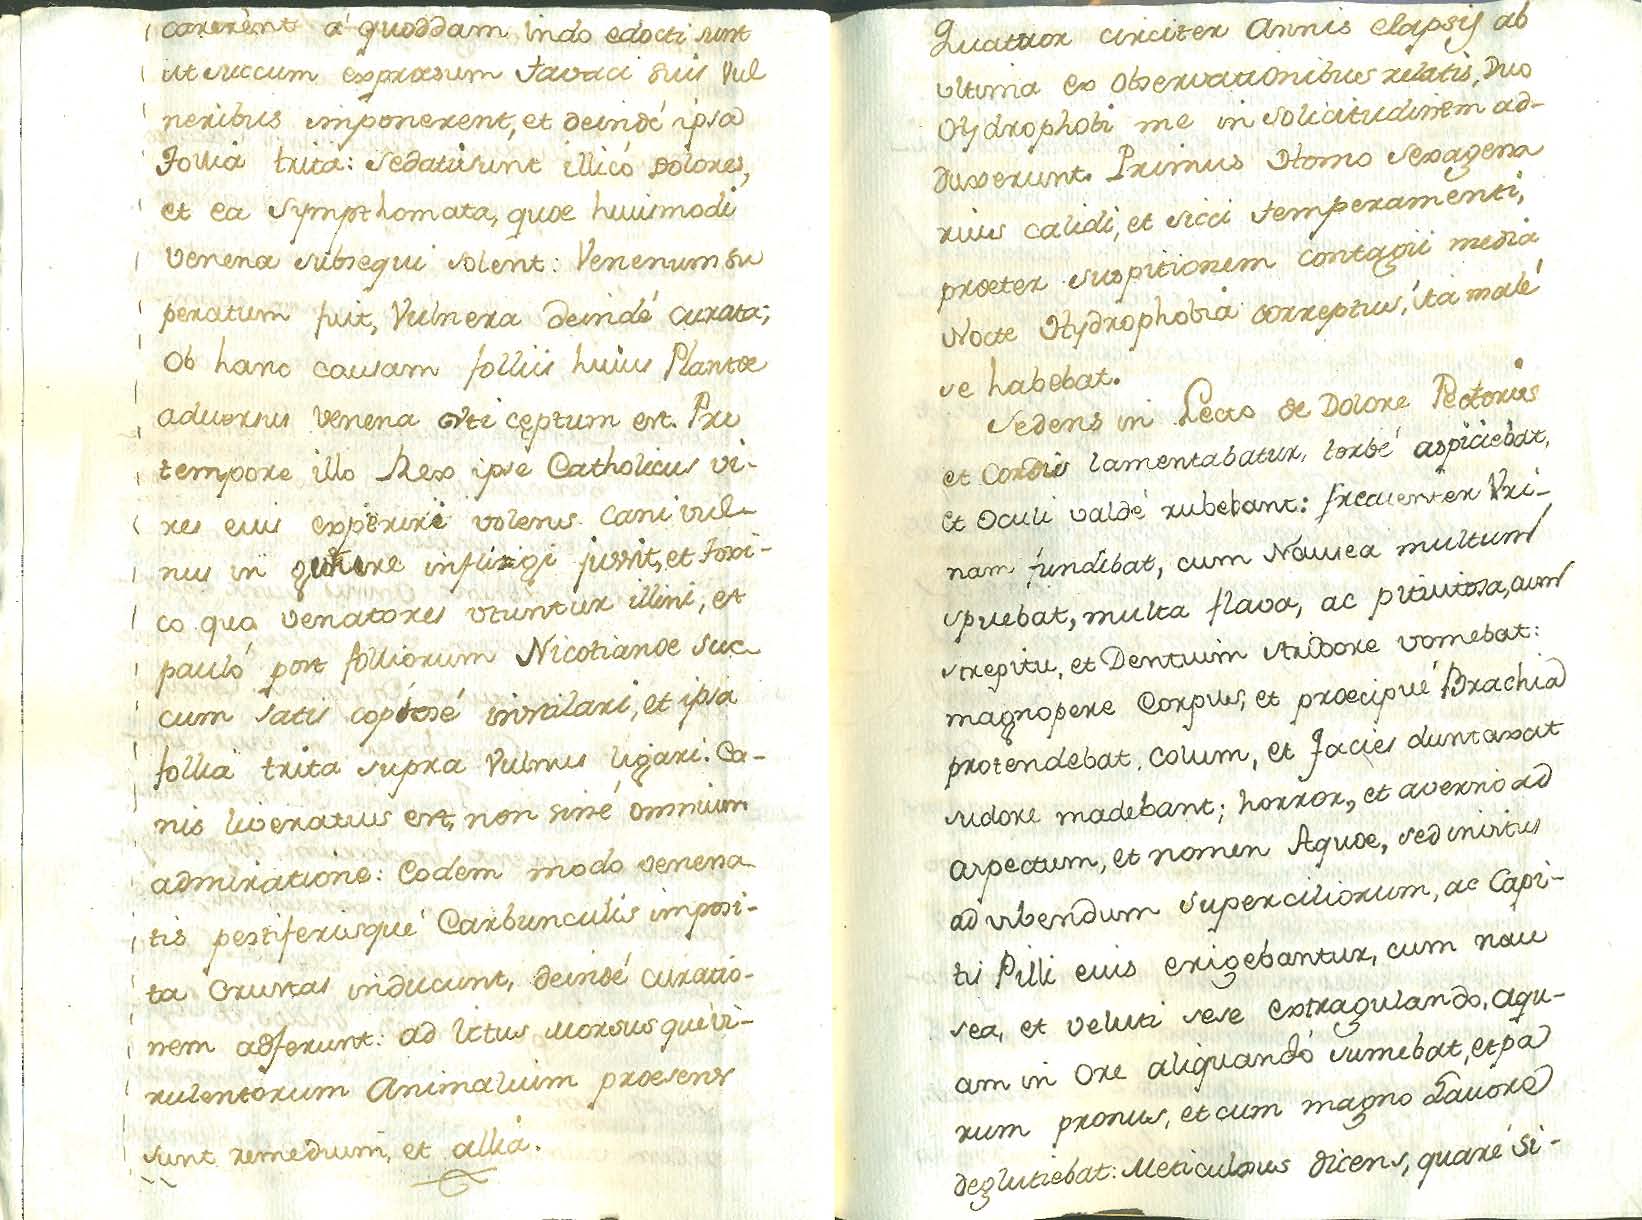 carerent à quoddam Indo edocti sunt
ut succum expressum Tavaci suis Vul
neribus imponerent, et deindé ipsa
Follia trita: Sedati sunt illicó Dolores,
et ea Sympthomata, quae huiusmodi
Venena subsequi solent: Venenum su
peratum fuit, Vulnera deindé curata;
Ob hanc causam folliis huius Plantae
adversus venena uti cęptum est. Pri
tempore illo Rex ipse Catholicus vi-
res eius experiri volens cani vul-
nus in guture infligi jussit, et toxi-
co quo venatores utuntur illini, et
pauló post folliorum Nicotianae suc-
cum satis copiosé instilari, et ipsa
follia trita supra Vulnus ligari. Ca-
nis liveratus est, non siné omnium
admiratione: Eodem modo venena
tis pestiferisqué Carbunculis imposi-
ta Crustas inducunt, deindé curatio-
nem adferunt: ad Ictus Morsusqué vi-
rulentorum Animalium praesens
sunt remedium, et allia.
Quattuor circiter Annis elapsis ab
ultima ex Observationibus relatis, Duo
Hydrophobi me in solicitudinem ad-
duxerunt. Primus Homo sexagena
rius calidi, et sicci temperamenti,
praeter suspitionem contagii media
Nocte Hydrophobia correptus, ita malé
se habebat.
Sedens in Lecto de Dolore Pectoris
et Cordis lamentabatur, torbé aspiciebat,
et Oculi valdé rubebant: frecuenter Vri-
nam fundibat, cum Nausea multum
spuebat, multa flava, ac pituitosa, cum
strepitu, et Dentium stridore vomebat:
magnopere Corpus, et praecipué Brachia
protendebat, Colum, et Facies duntaxat
sudore madebant; horror, et aversio ad
aspectum, et nomen Aquae, sed invitus
ad vibendum superciliorum, ac Capi-
tis Pilli eius erigebantur, cum nau
sea, et veluti sese extragulando, aqu-
am in Ore aliquandó sumebat, et pa
rum pronus, et cum magno Pavore
deglutiebat: Meticulosus dicens, quaré si-